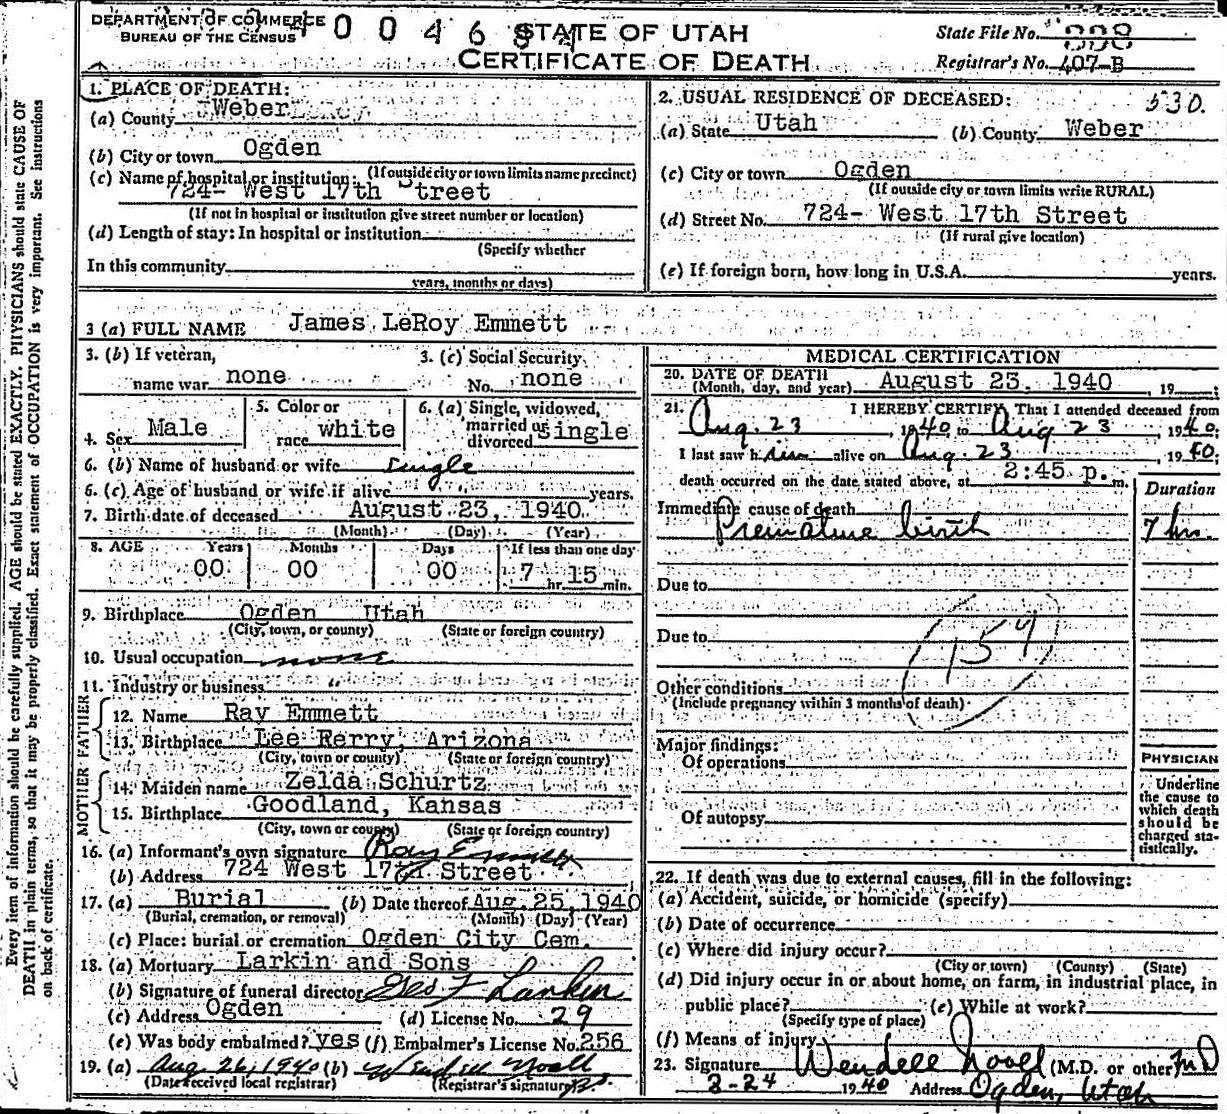 DEPARTMENT OF COMMERCE
BUREAU OF THE CENSUS
0 0 4 6
STATE OF UTAH
CERTIFICATE OF DEATH
State File No.
Registrar's No. 407-B
1. PLACE OF DEATH:
(a) County Weber
(b) City or town Ogden
(If outside city or town limits name precinct)
(c) Name of hospital or institution:
724- West 17th Street
(If not in hospital or institution give street number or location)
(d) Length of stay: In hospital or institution
(Specify whether
In this community
years, months or days)
2. USUAL RESIDENCE OF DECEASED: 530.
(a) State Utah (b) County Weber
(c) City or town Ogden
(If outside city or town limits write RURAL)
(d) Street No. 724- West 17th Street
(If rural give location)
(e) If foreign born, how long in U.S.A. years.
3 (a) FULL NAME James LeRoy Emmett
3. (b) If veteran,
name war none
3. (c) Social Security
No. none
4. Sex Male
5. Color or
race white
6. (a) Single, widowed,
married or
divorced Single
6. (b) Name of husband or wife single
6. (c) Age of husband or wife if alive years.
7. Birth date of deceased August 23, 1940
(Month) (Day) (Year)
8. AGE Years Months Days If less than one day
00 00 00 7 hr. 15 min.
9. Birthplace Ogden Utah
(City, town, or county) (State or foreign country)
10. Usual occupation none
11. Industry or business "
FATHER
12. Name Ray Emmett
13. Birthplace Lee Rerry, Arizona
(City, town or county) (State or foreign country)
MOTHER
14. Maiden name Zelda Schurtz
15. Birthplace Goodland, Kansas
(City, town or county) (State or foreign country)
16. (a) Informant's own signature Ray Emmett
(b) Address 724 West 17th Street
17. (a) Burial (b) Date thereof Aug. 25, 1940
(Burial, cremation, or removal) (Month) (Day) (Year)
(c) Place: burial or cremation Ogden City Cem.
18. (a) Mortuary Larkin and Sons
(b) Signature of funeral director Geo F Larkin
(c) Address Ogden (d) License No. 29
(e) Was body embalmed? yes (f) Embalmer's License No. 256
19. (a) Aug 26, 1940 (b) Wendell Noall
(Date received local registrar) (Registrar's signature)
MEDICAL CERTIFICATION
20. DATE OF DEATH
(Month, day, and year) August 23, 1940 19 ;
21. I HEREBY CERTIFY, That I attended deceased from
Aug. 23, 1940 to Aug 23, 1940;
I last saw him alive on Aug. 23, 1940;
death occurred on the date stated above, at 2:45 p. m.
Duration
Immediate cause of death
Premature birth 7 hrs.
Due to
Due to
154
Other conditions
(Include pregnancy within 3 months of death)
Major findings:
Of operations
Of autopsy
PHYSICIAN
Underline
the cause to
which death
should be
charged sta-
tistically.
22. If death was due to external causes, fill in the following:
(a) Accident, suicide, or homicide (specify)
(b) Date of occurrence
(c) Where did injury occur?
(City or town) (County) (State)
(d) Did injury occur in or about home, on farm, in industrial place, in
public place? (e) While at work?
(Specify type of place)
(f) Means of injury
23. Signature Wendell Noall (M.D. or other) MD
2-24 1940 Address Ogden, Utah
Every item of information should be carefully supplied. AGE should be stated EXACTLY. PHYSICIANS should state CAUSE OF
DEATH in plain terms, so that it may be properly classified. Exact statement of OCCUPATION is very important. See instructions
on back of certificate.